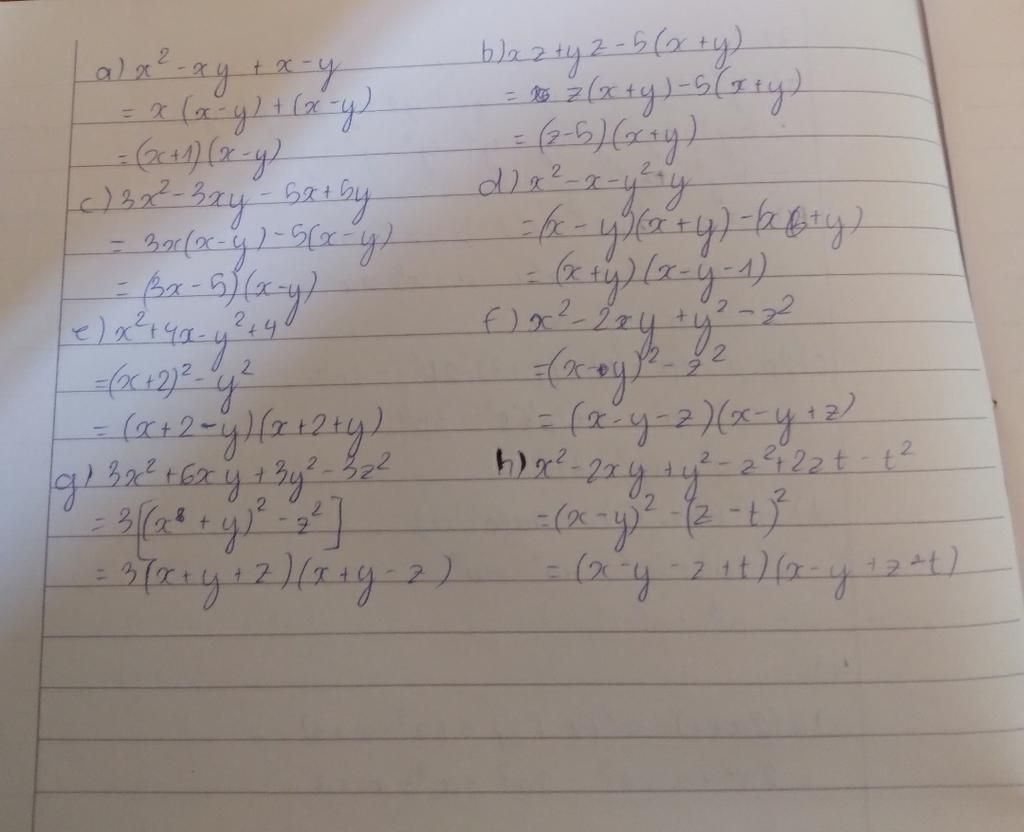 a) x² - xy + x - y
= x (x-y) + (x-y)
= (x+1) (x-y)
b) xz + yz - 5(x+y)
= z(x+y) - 5(x+y)
= (z-5) (x+y)
c) 3x² - 3xy - 5x + 5y
= 3x(x-y) - 5(x-y)
= (3x-5) (x-y)
d) x² - x - y² + y
= (x-y)(x+y) - (x+y)
= (x+y) (x-y-1)
e) x² + 4x - y² + 4
= (x+2)² - y²
= (x+2-y)(x+2+y)
f) x² - 2xy + y² - z²
= (x-y)² - z²
= (x-y-z)(x-y+z)
g) 3x² + 6xy + 3y² - 3z²
= 3[(x+y)² - z²]
= 3(x+y+z)(x+y-z)
h) x² - 2xy + y² - z² + 2zt - t²
= (x-y)² - (z-t)²
= (x-y-z+t)(x-y+z-t)